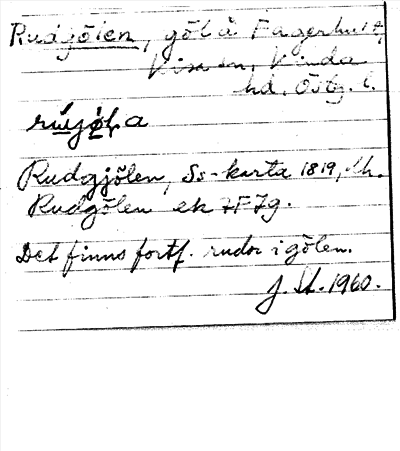 Rudjölen, göl å Fagerhult,
Kisa sn, Kinda
hd. Östg. l.
rújö̀la
Rudgjölen, Ss-karta 1819, Lh.
Rudgölen ek 7F7g.
Det finns fortf. rudor i gölen.
J. St. 1960.